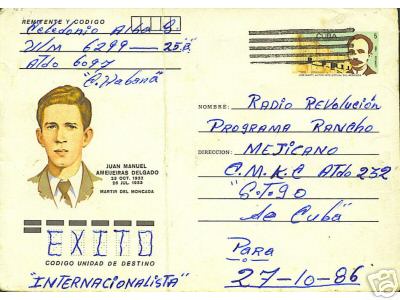 REMITENTE Y CODIGO
Celedonio Alba S
U/M 6299 — 25B
Atdo 6097
"C. Habana"
CUBA
5
JUAN MANUEL
AMEIJEIRAS DELGADO
26 JUL. 1953
MARTIR DEL MONCADA
EXITO
CODIGO UNIDAD DE DESTINO
"INTERNACIONALISTA"
NOMBRE: RADIO REVOLUCIÓN
PROGRAMA RANCHO
DIRECCION: MEJICANO
C.M.K.C ATdo 232
"S.to.go
de Cuba"
Para
27-10-86
ebay